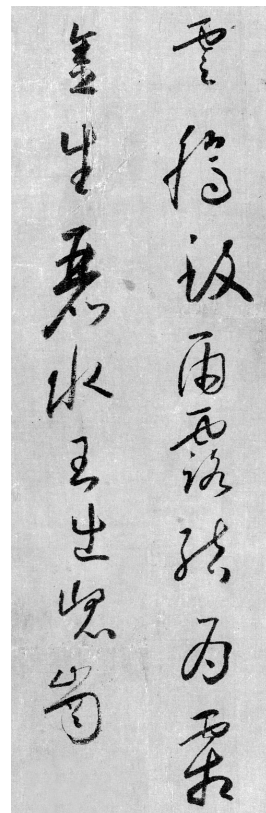 雲騰致雨露結為霜
金生麗水玉出崐崗